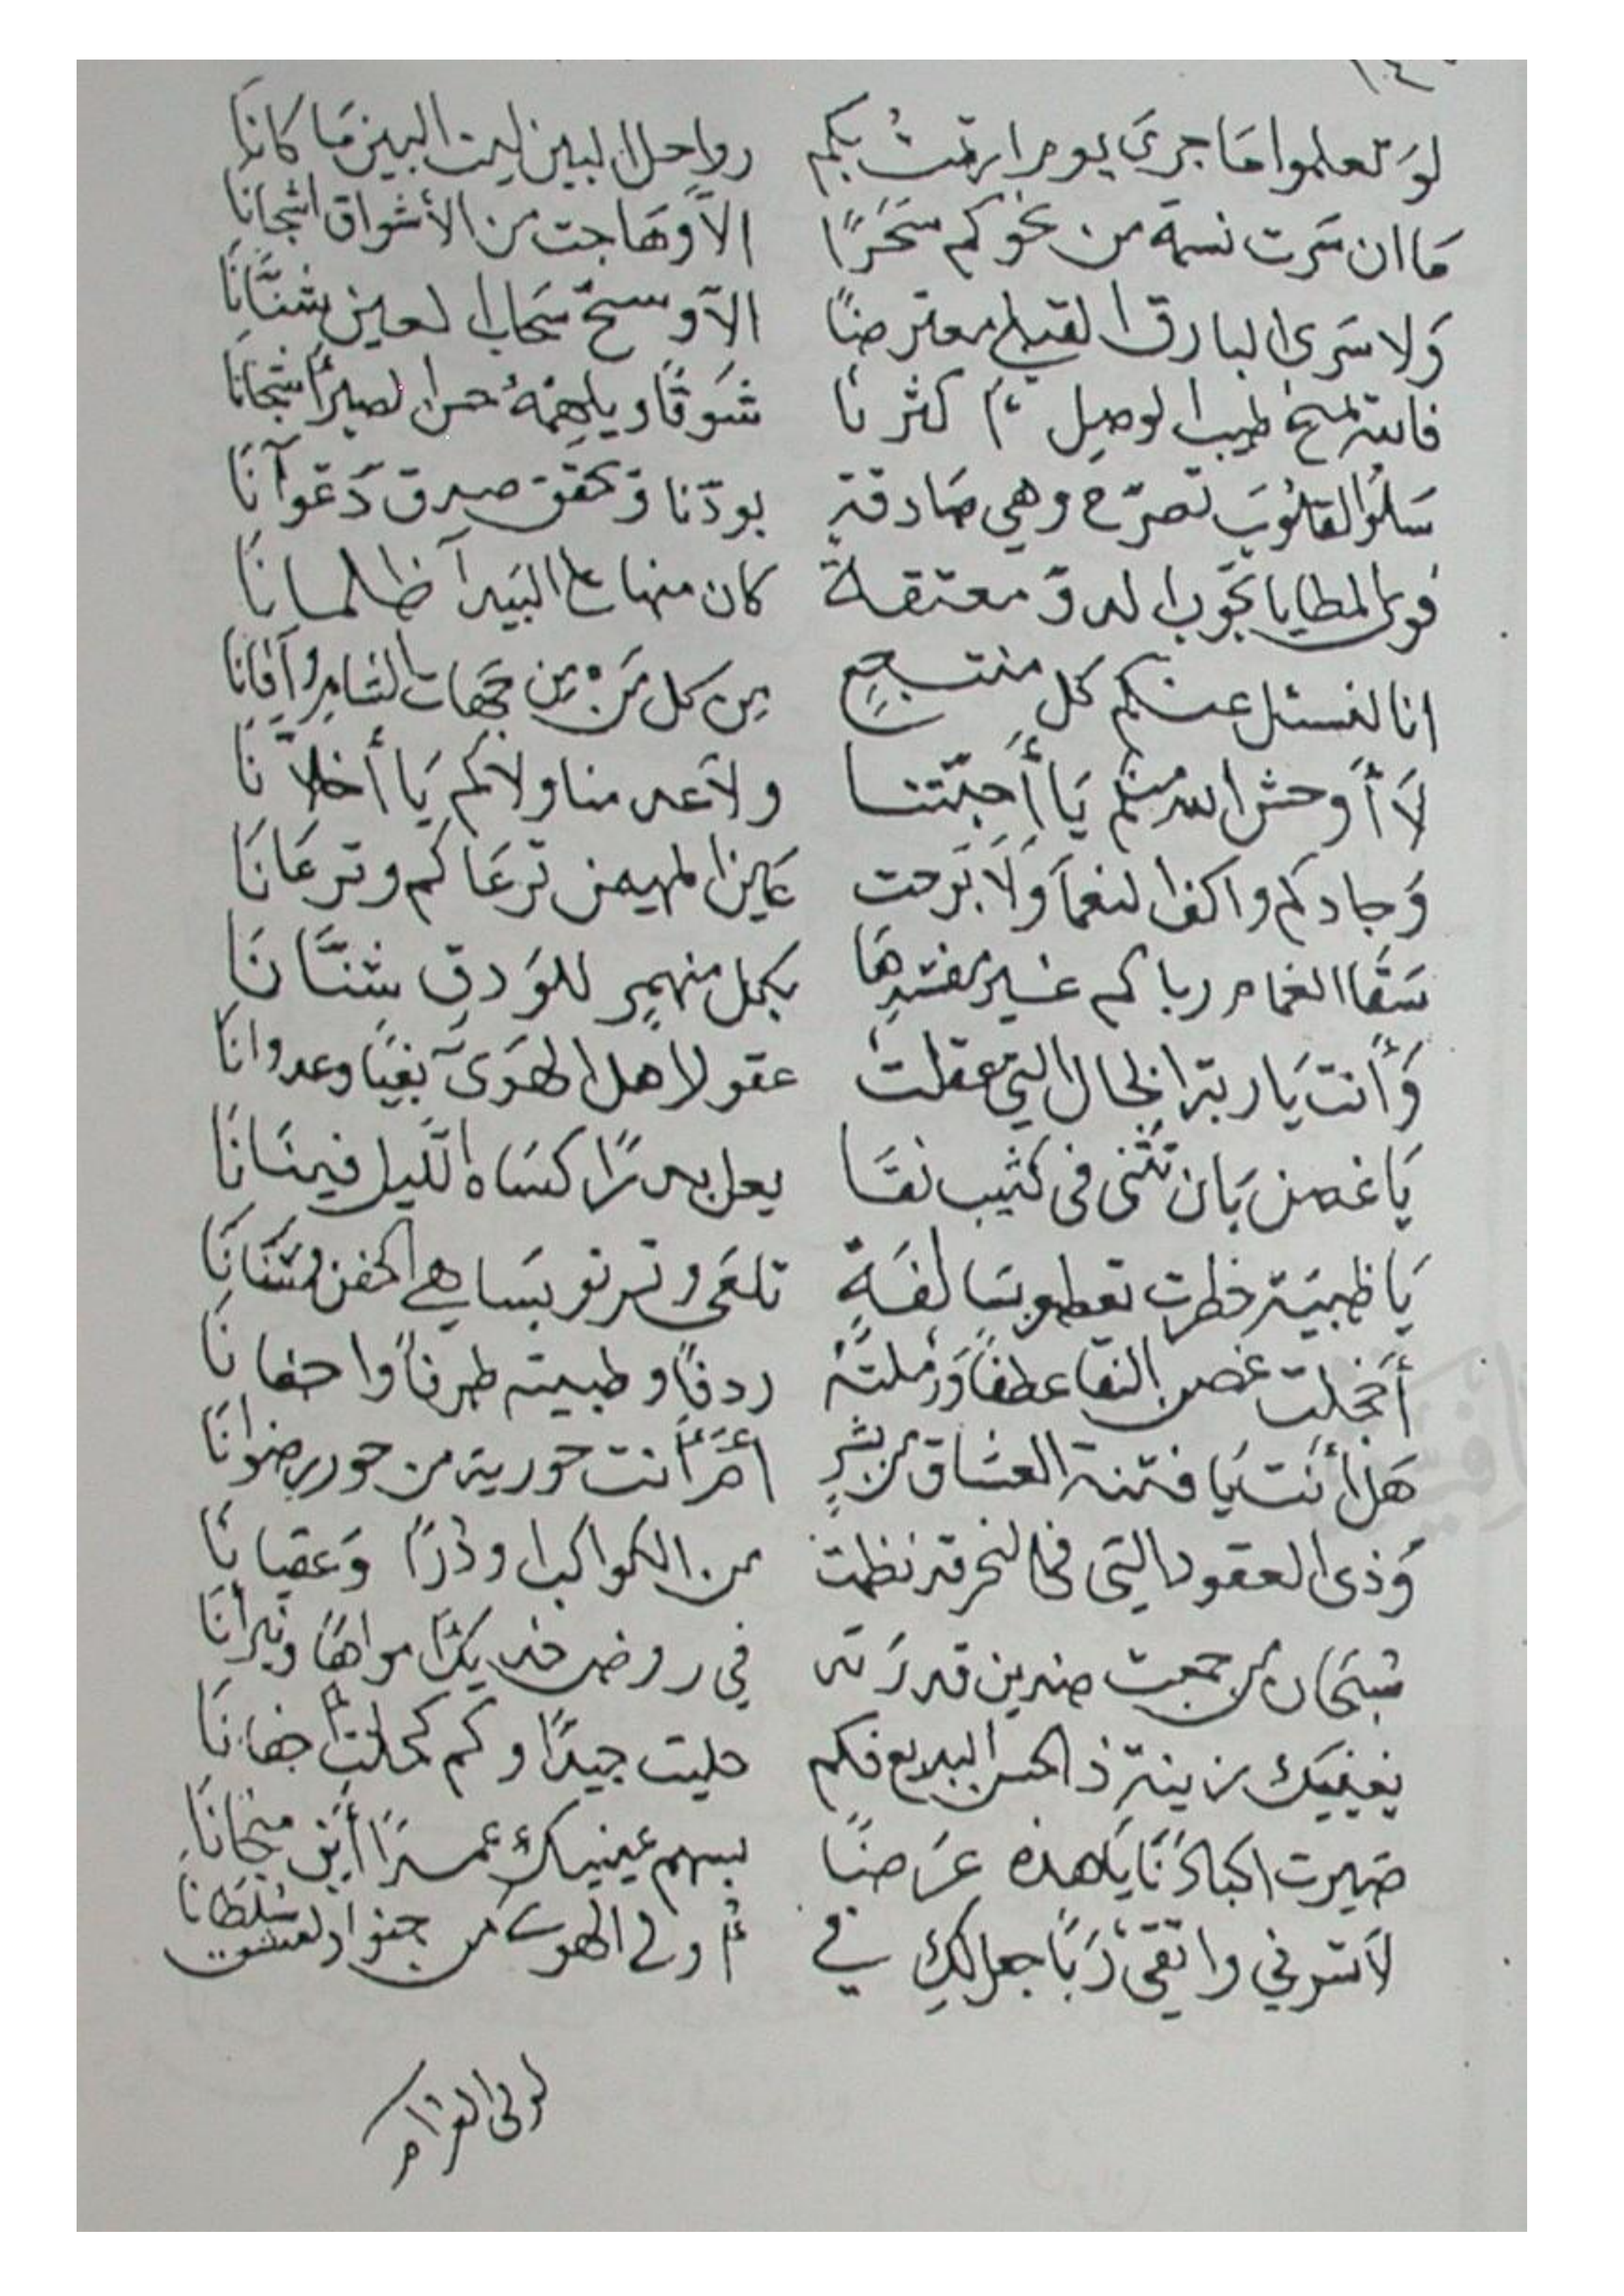 لو تعلموا ما جرى يوم ارتمت بكم رواحل البين ليت البين ما كانا
ما ان سرت نسمة من نحوكم سحرًا الا وهاجت من الأشواق اشجانا
ولا سرى البارق معترضًا الا وسح سحاب العين شنانا
فالله يمنح طيب الوصل كثرنا شوقًا ويلهمه حسن الصبر اشجانا
سلوا القلوب تصرح وهي صادقة بودنا وتحقق صدق دعوانا
فوى المطايا تجوب الدو معتقة كان منهاع البيدآ ظلمانا
انا لنسئل عنكم كل منتجع من كل من من جهات الشام وآفانا
لا أوحش الله منكم يا أحبتنا ولا عدمنا ولاكم يا أخلانا
وجادكم واكف النعما ولا برحت عين المهيمن ترعاكم وترعانا
سقا الغمام رباكم غير مفسدها بكل منهمر للودق شنانا
وأنت يا ربة الخال التي عقلت عقول اهل الهوى بغيًا وعدوانا
يا غصن بان تثنى في كثيب نقا يعل بدرًا كساه الليل فينانا
يا ظبية خطرت تعطو بسالفة تلعى وترنو بساهي الجفن وسنانا
أخجلت غصن النقا عطفًا ورملته ردفًا وظبيته طرفًا واجفانا
هل أنت يا فتنة العشاق من بشر أم أنت حورية من حور رضوانا
وذى العقود التي في النحر قد نظمت من الكواكب او درًا وعقيانا
سبحان من جمعت ضدين قدرته في روض خديك امواهًا ونيرانا
يغنيك زينة ذا الحسن البديع فكم حليت جيدًا وكم كحلت أجفانا
صيرت اكبادنا يا هذه غرضًا بسهم عينيك عمدًا أين منجانا
لا تسرفي واتقي ربًا جعل لك في أم ولى الهوى من جنود العشق سلطانا
لولى الغرام